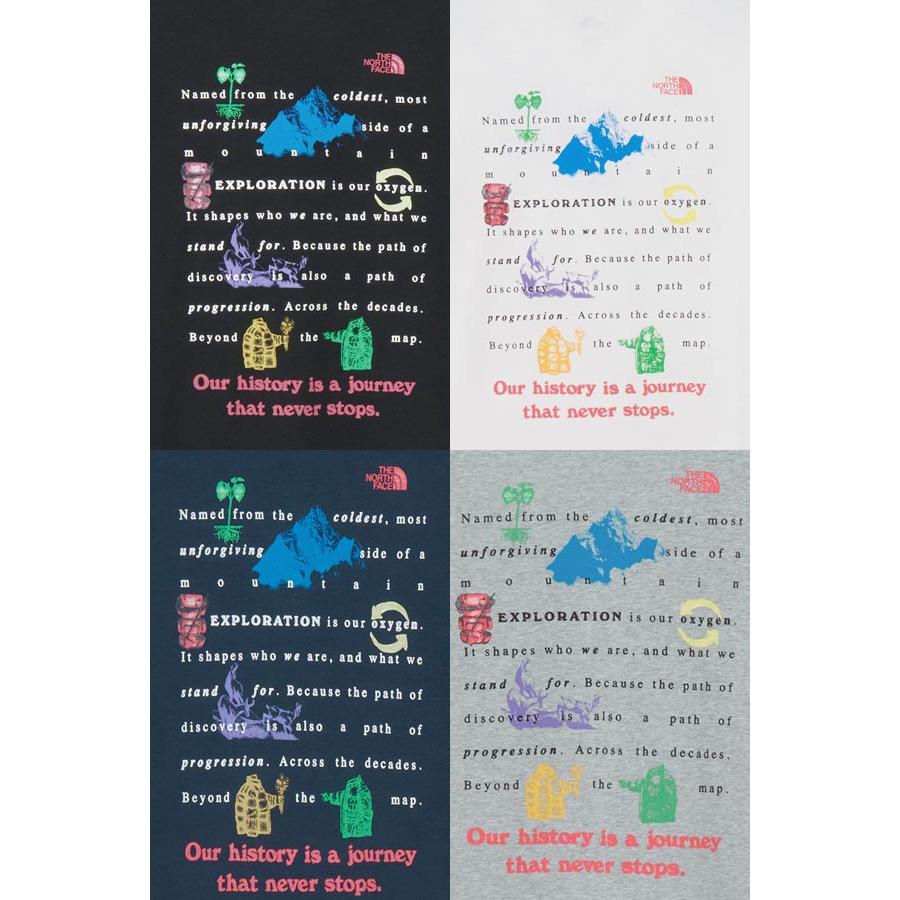 THE
NORTH
FACE
Named from the coldest, most
unforgiving side of a
mountain
EXPLORATION is our oxygen.
It shapes who we are, and what we
stand for. Because the path of
discovery is also a path of
progression. Across the decades.
Beyond the map.
Our history is a journey
that never stops.
THE
NORTH
FACE
Named from the coldest, most
unforgiving side of a
mountain
EXPLORATION is our oxygen.
It shapes who we are, and what we
stand for. Because the path of
discovery is also a path of
progression. Across the decades.
Beyond the map.
Our history is a journey
that never stops.
THE
NORTH
FACE
Named from the coldest, most
unforgiving side of a
mountain
EXPLORATION is our oxygen.
It shapes who we are, and what we
stand for. Because the path of
discovery is also a path of
progression. Across the decades.
Beyond the map.
Our history is a journey
that never stops.
THE
NORTH
FACE
Named from the coldest, most
unforgiving side of a
mountain
EXPLORATION is our oxygen.
It shapes who we are, and what we
stand for. Because the path of
discovery is also a path of
progression. Across the decades.
Beyond the map.
Our history is a journey
that never stops.